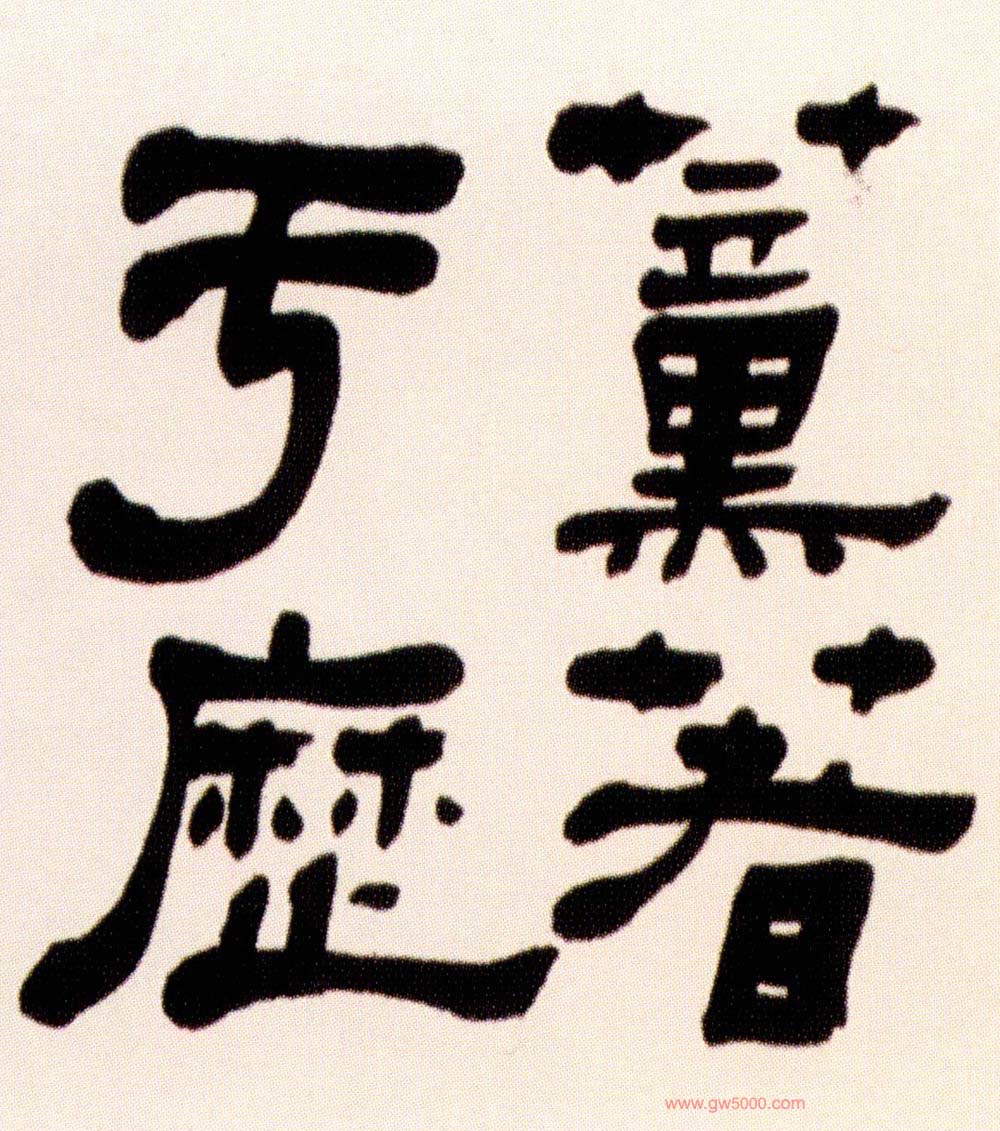 薰著
于歷
www.gw5000.com